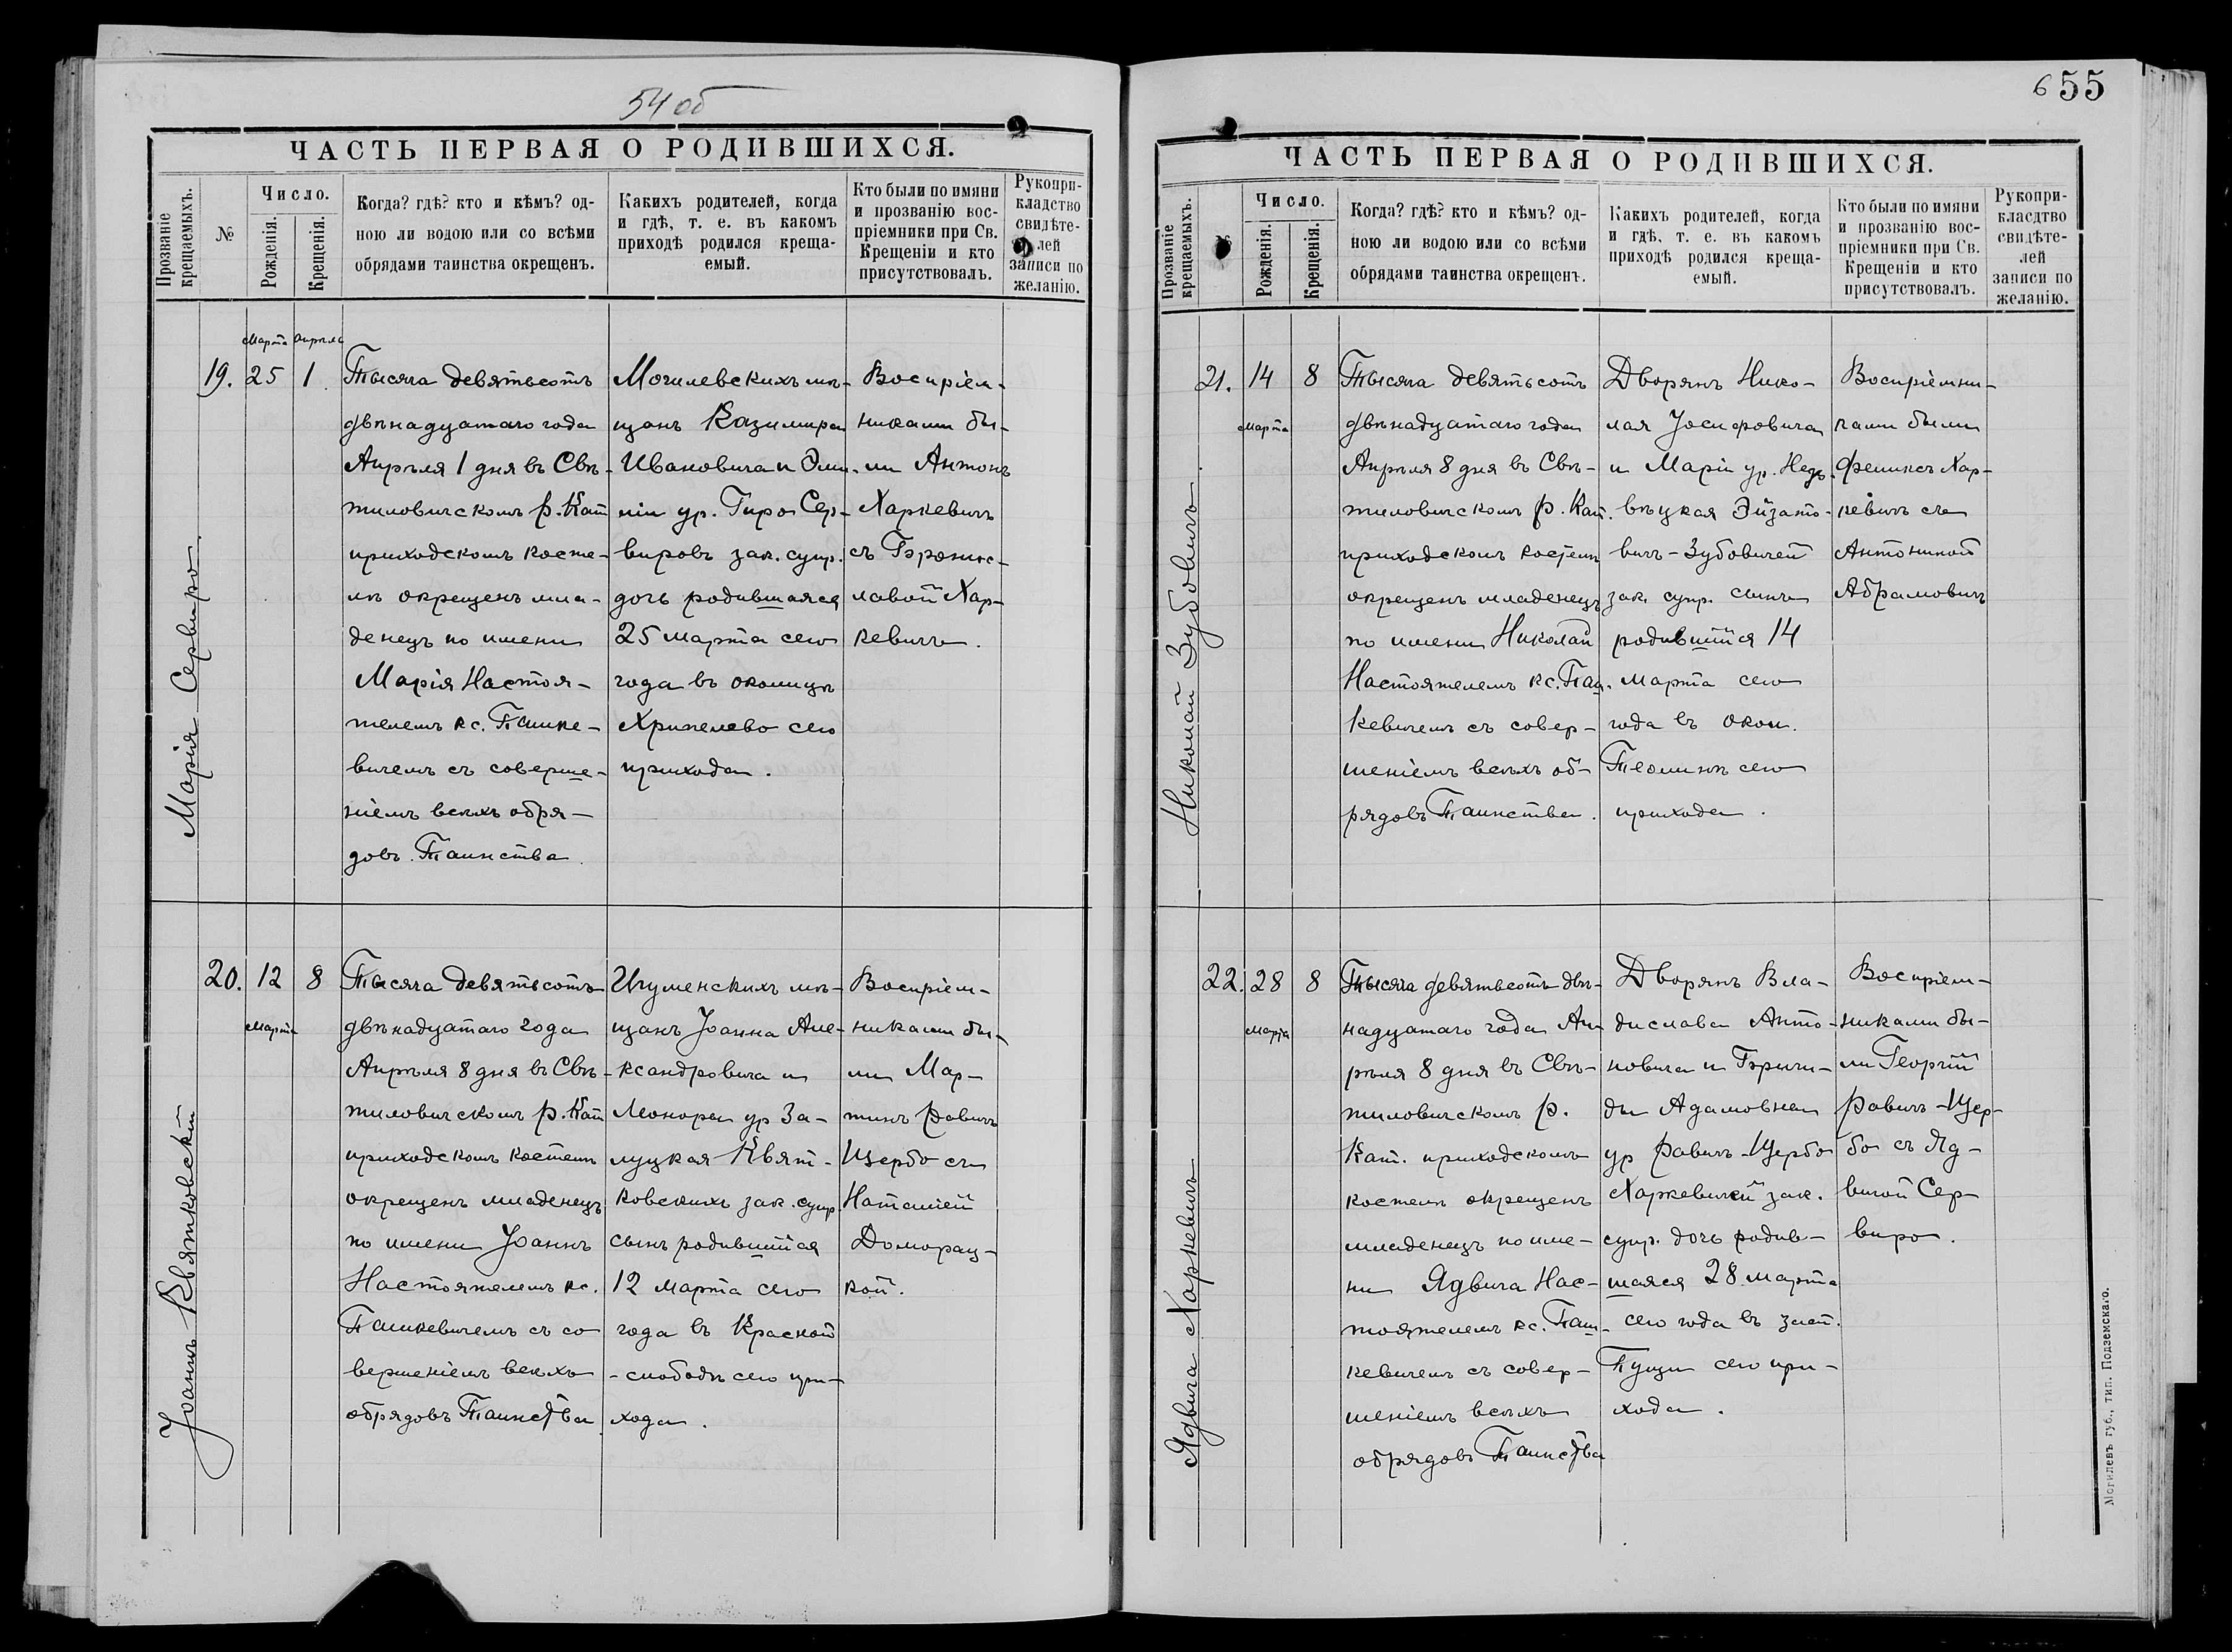 54 об
ЧАСТЬ ПЕРВАЯ О РОДИВШИХСЯ.
Прозваніе крещаемыхъ.
№
Число.
Рожденія.
Крещенія.
Когда? гдѣ? кто и кѣмъ? од-
ною ли водою или со всѣми
обрядами таинства окрещенъ.
Какихъ родителей, когда
и гдѣ, т. е. въ какомъ
приходѣ родился креща-
емый.
Кто были по имяни
и прозванію вос-
пріемники при Св.
Крещеніи и кто
присутствовалъ.
Рукопри-
кладство
свидѣте-
лей
записи по
желанію.
Марія Сервиро
19.
Марта
25
Апрѣля
1
Тысяча девятьсотъ
двѣнадцатаго года
Апрѣля 1 дня въ Свѣ-
тиловичскомъ р. Кат
приходскомъ косте-
лѣ окрещенъ мла-
денецъ по имени
Марія Настоя-
телемъ кс. Пашке-
вичемъ съ соверше-
ніемъ всѣхъ обря-
довъ Таинства.
Могилевскихъ мѣ-
щанъ Казимира
Ивановича и Эми-
ліи ур. Гиро Сер-
вировъ зак. супр.
дочь родившаяся
25 Марта сего
года въ околицѣ
Хрипелево сего
прихода.
Воспріем-
никами бы-
ли Антонъ
Харкевичъ
съ Брониc-
лавой Хар-
кевичъ.
Іоаннъ Квятковскій
20.
12
Марта
8
Тысяча девятьсотъ
двѣнадцатаго года
Апрѣля 8 дня въ Свѣ-
тиловичскомъ р. Кат
приходскомъ костелѣ
окрещенъ младенецъ
по имени Іоаннъ
Настоятелемъ кс.
Пашкевичемъ съ со
вершеніемъ всѣхъ
обрядовъ Таинства
Игуменскихъ мѣ-
щанъ Іоанна Але-
ксандровича и
Леоноры ур За-
луцкая Квят-
ковскихъ зак. супр
сынъ родившійся
12 Марта сего
года въ Красной
-слободѣ сего при-
хода.
Воспріем-
никами бы-
ли Мар-
тинъ Равичъ
Щербо съ
Наталіей
Доморац-
кой.
6 55
ЧАСТЬ ПЕРВАЯ О РОДИВШИХСЯ.
Прозваніе крещаемыхъ.
Число.
Рожденія.
Крещенія.
Когда? гдѣ? кто и кѣмъ? од-
ною ли водою или со всѣми
обрядами таинства окрещенъ.
Какихъ родителей, когда
и гдѣ, т. е. въ какомъ
приходѣ родился креща-
емый.
Кто были по имяни
и прозванію вос-
пріемники при Св.
Крещеніи и кто
присутствовалъ.
Рукопри-
класдтво
свидѣте-
лей
записи по
желанію.
Николай Зубовичъ
21.
14
Марта
8
Тысяча девятьсотъ
двѣнадцатаго года
Апрѣля 8 дня въ Свѣ-
тиловичскомъ р. Кат.
приходскомъ костелѣ
окрещенъ младенецъ
по имени Николай
Настоятелемъ кс. Паш-
кевичемъ съ совер-
шеніемъ всѣхъ об-
рядовъ Таинства.
Дворянъ Нико-
лая Іосифовича
и Маріи ур. Недз-
вѣцкая Эйзато-
вичъ-Зубовичей
зак. супр. сынъ
родившійся 14
Марта сего
года въ окол.
сего
прихода.
Воспріемни-
ками были
Феликсъ Хар-
кевичъ съ
Антониной
Абрамовичъ
Ядвига Харкевичъ
22.
28
Марта
8
Тысяча девятьсотъ двѣ-
надцатаго года Ап-
рѣля 8 дня въ Свѣ-
тиловичскомъ р.
Кат. приходскомъ
костелѣ окрещенъ
младенецъ по име-
ни Ядвига Нас-
тоятелемъ кс. Паш-
кевичемъ съ совер-
шеніемъ всѣхъ
обрядовъ Таинства
Дворянъ Вла-
дислава Анто-
новича и
Адамовны
ур Равичъ-Щербо
Харкевичей зак.
супр. дочь родив-
шаяся 28 Марта
сего года въ заст.
Пущи сего при-
хода.
Воспріем-
никами бы-
ли Георгій
Равичъ-Щер-
бо съ Яд-
вигой Сер-
виро.
Могилевъ губ., тип. Подземскаго.